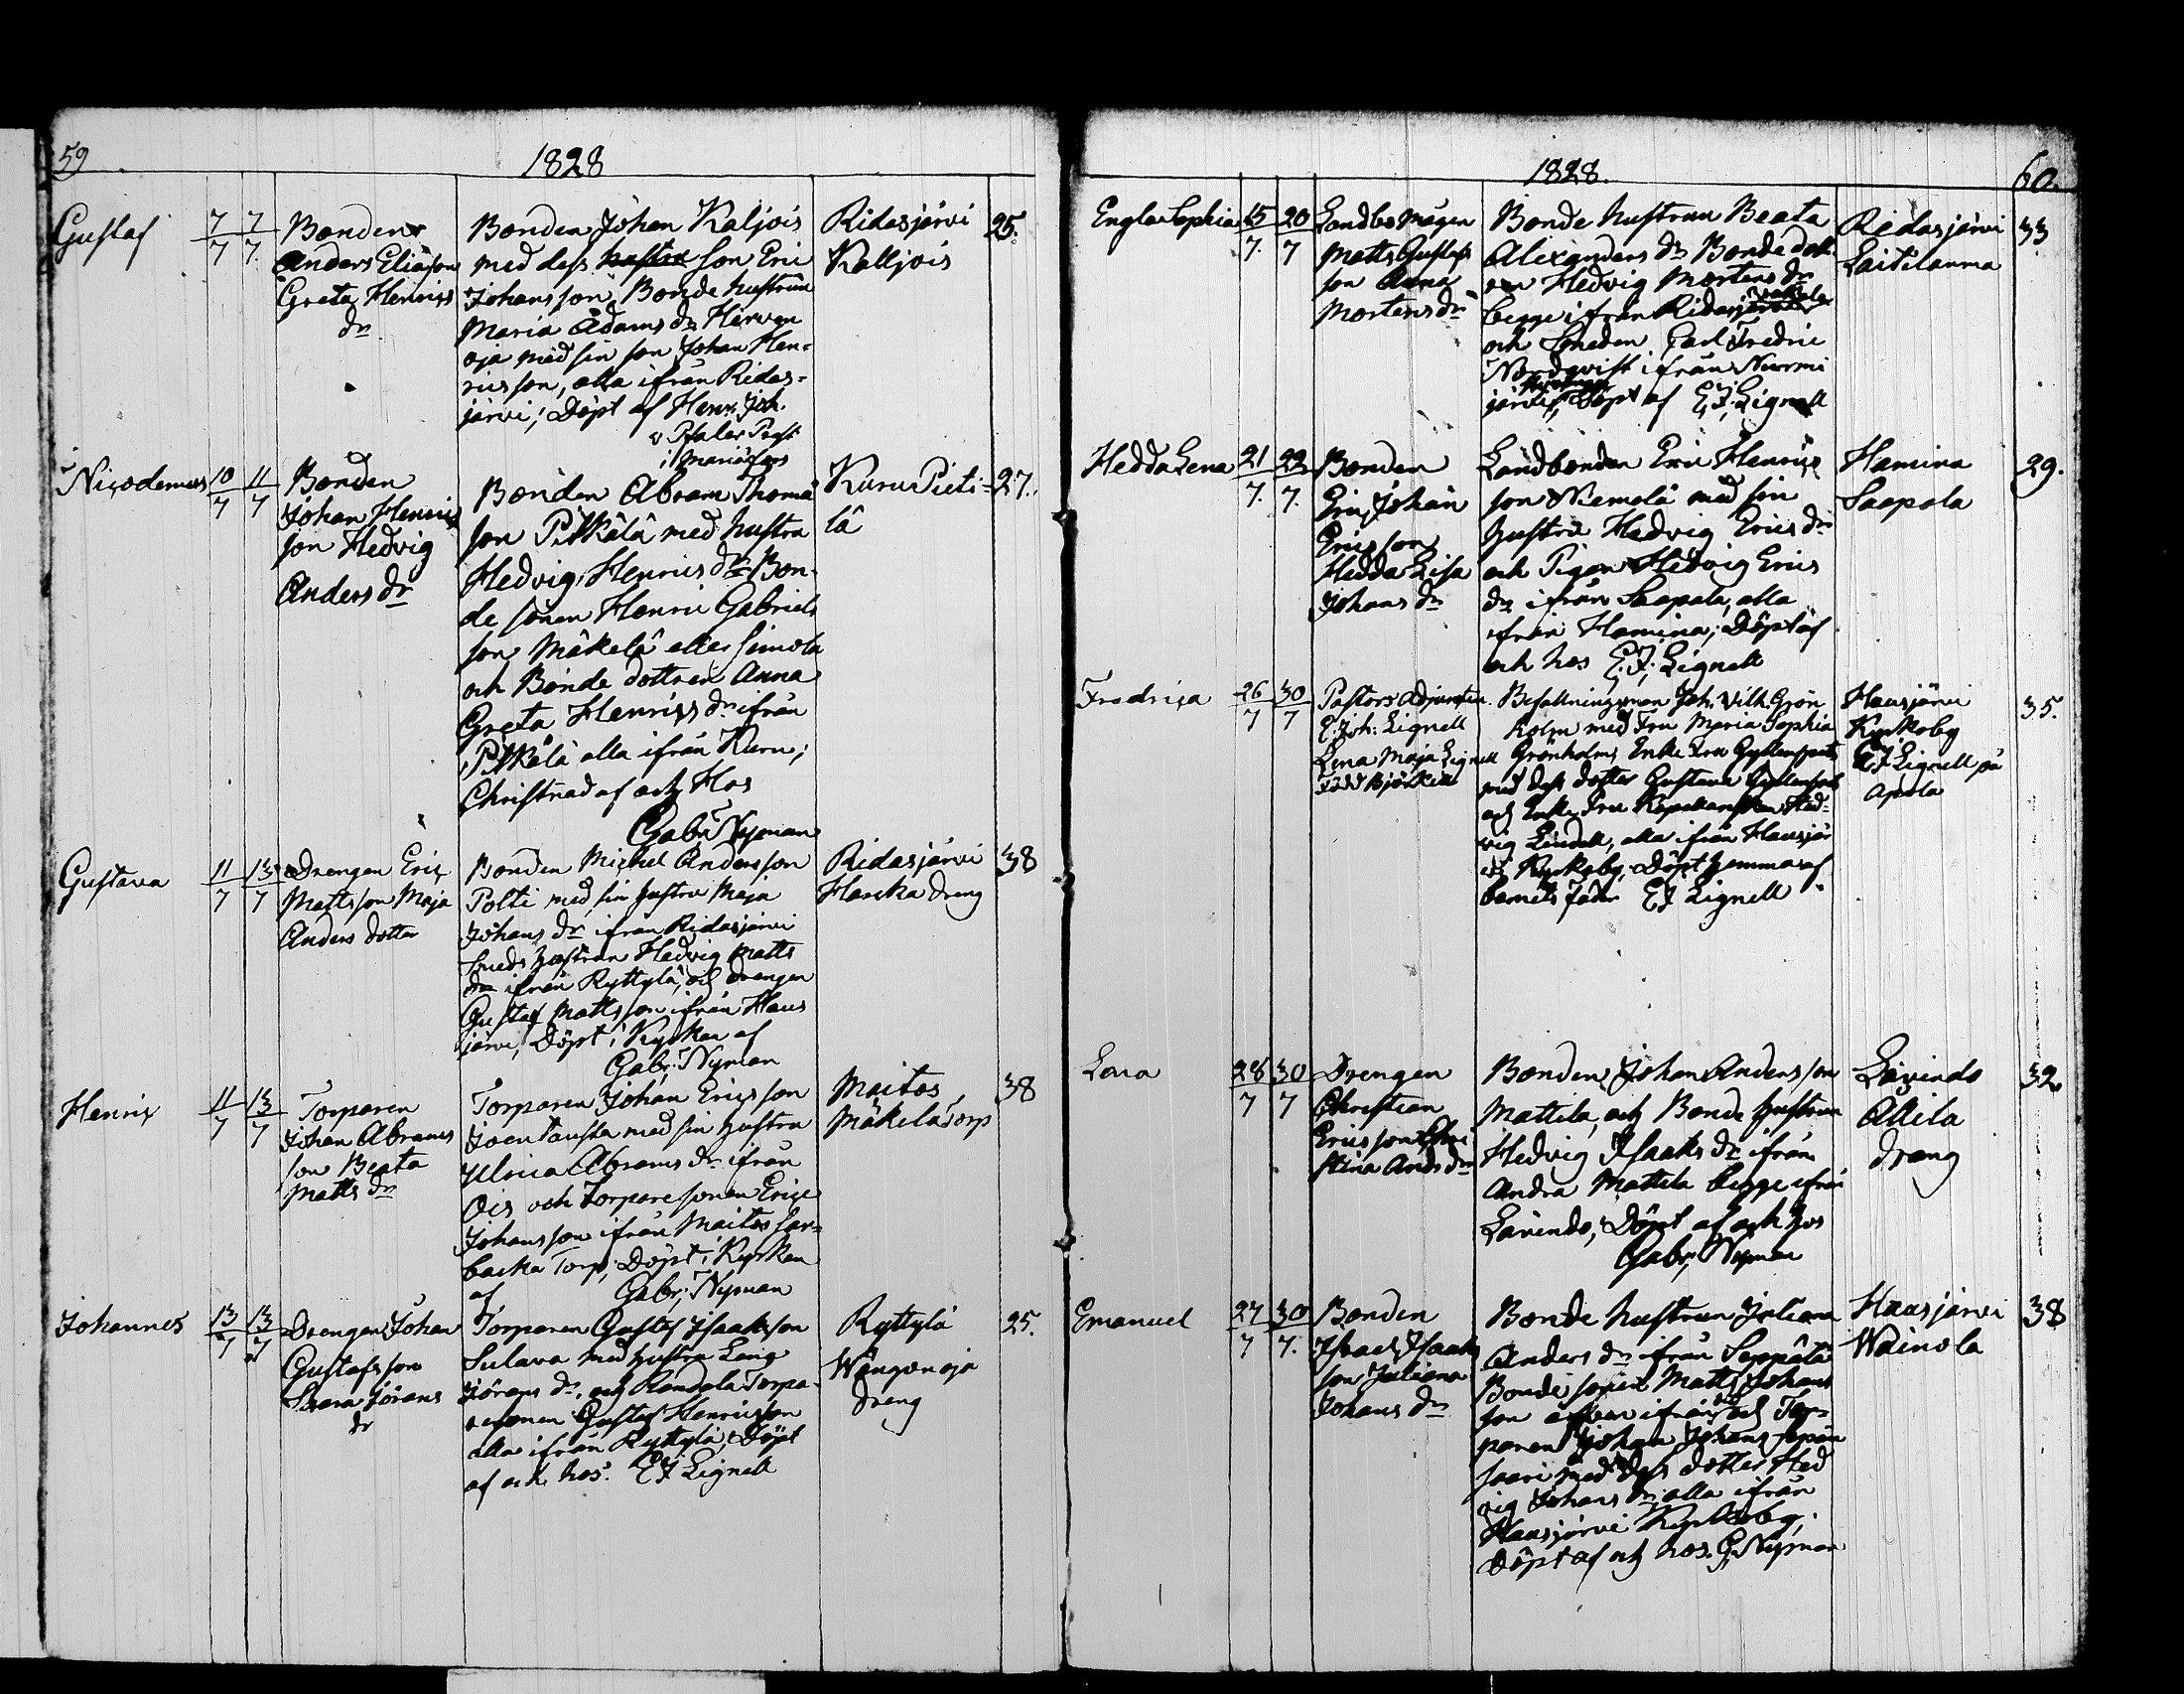 59
1828
Gustaf
7/7 7/7
Bonden
Anders Eliæson
Greta Henrics
dr
Bonden Johan Kaljois
med dess hustru son Eric
Johansson, Bonde hustrun
Maria Adams dr Hirven
oja med sin son Johan Hen-
ricsson, alla ifrån Ridas-
järvi; Döpt af Henr. Joh.
v Pfaler Past:
i Mariæfors
Ridasjärvi
Kalljois
25.
Nicodemus
10/7 11/7
Bonden
Johan Henrics
son Hedvig
Anders dr
Bonden Abram Thomæ
son Pitkälä med hustru
Hedvig Henrics dr Bon-
de sonen Henric Gabriels
son Mäkelä eller Simola
och Bonde dottren Anna
Greta Henrics dr ifrån
Pitkälä alla ifrån Kuru;
Christnad af och Hos
Gabr: Nyman
Kuru Pieti-
lä
27.
Gustava
11/7 13/7
Drengen Eric
Mattsson Maja
Anders dotter
Bonden Michel Andersson
Polti med sin hustru Maja
Johans dr ifrån Ridasjärvi
Smeds hustrun Hedvig Matts
dr ifrån Ryttylä, och Drengen
Gustaf Mattsson ifrån Haus
järvi, Döpt i Kyrkan af
Gabr: Nyman
Ridasjärvi
Haucka dreng
38
Henric
11/7 13/7
Torparen
Johan Abrams
son Beata
Matts dr
Torparen Johan Ericsson
Joentausta med sin hustru
Ulrica Abrams dr ifrån
Ois och Torparesonen Eric
Johansson ifrån Maitos
backa Torp; Döpt i Kyrkan
af Gabr: Nyman
Maitos
Mäkelä Torp
38
Johannes
13/7 13/7
Drengen Johan
Gustafsson
Saara Jörans
dr
Torparen Gustaf Isaaksson
Sulava med hustru
Jörans dr, och Randala Torpa-
resonen Gustaf Henricsson
alla ifrån Ryttylä; Döpt
af och hos. E J Lignell
Ryttylä
Wängänoja
dreng
25.
1828.
60.
Engla Sophia
15/7. 20/7
Landbo Mågen
Matts Gustafs
son Anna
Mortens dr
Bonde hustrun Beata
Alexanders dr Bonde dott
ren Hedvig Mortens dr
begge ifrån Ridasjärvi
och Smeden Carl Fredric
Nordqvist ifrån Nurmi
järvi, Döpt af E. J. Lignell
Ridasjärvi
Laitilanma
33
Hedda Lena
21/7. 22/7.
Bonden
Eric Johan
Ericsson
Hedda Lisa
Johans dr
Landbonden Eric Henrics
son Niemelä med sin
hustru Hedvig Erics dr
och Pigan Hedvig Erics
dr ifrån Saapala, alla
ifrån Hamina; Döpt af
och hos E. J. Lignell
Hamina
Saapala
29.
Fredrica
26/7 30/7
Pastors Adjuncten
E. Joh: Lignell
Lena Maja Lignell
född Björkell
Befallningsman Joh. Vilh. Grön
holm med Fru Maria Sophia
Grönholm, Enke Fru
med dess dotter Gustava
och Enke Fru Hed-
vig Lindell, alla ifrån Hausjär
vi Kyrkoby, Döpt hemma af
barnets fader E J Lignell
Hausjärvi
Kyrkoby
E J Lignell på
35.
Lena
28/7 30/7
Drengen
Christian
Ericsson Chri
stina Ands dr
Bonden Johan Andersson
Mattila, och Bonde hustrun
Hedvig Isaaks dr ifrån
Andra Mattila begge ifrån
Lavindo, Döpt af och hos
Gabr: Nyman
Lavindo
Alila
dreng
32
Emanuel
27/7 30/7.
Bonden
Isaac Isaacs
son Juliana
Johans dr
Bonde hustrun Juliana
Anders dr ifrån Seppälä
Bonde sonen Matts Johans
son ifrån och Tor-
paren Johan Johans
saari med dess dotter Hed
vig Johans dr alla ifrån
Hausjärvi Kyrkoby;
Döpt af och hos. G. Nyman
Hausjärvi
Wäinola
38